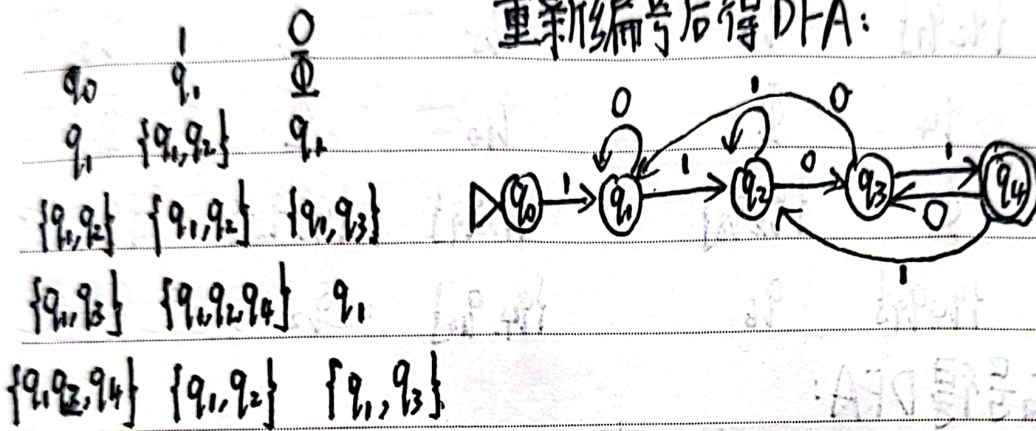 重新编号后得DFA:
1 0
q0 q1 Φ
q1 {q1,q2} q1
{q1,q2} {q1,q2} {q1,q3}
{q1,q3} {q1,q2,q4} q1
{q1,q2,q4} {q1,q2} {q1,q3}
0 1 0
q0 1 q1 1 q2 0 q3 1 q4
0
1